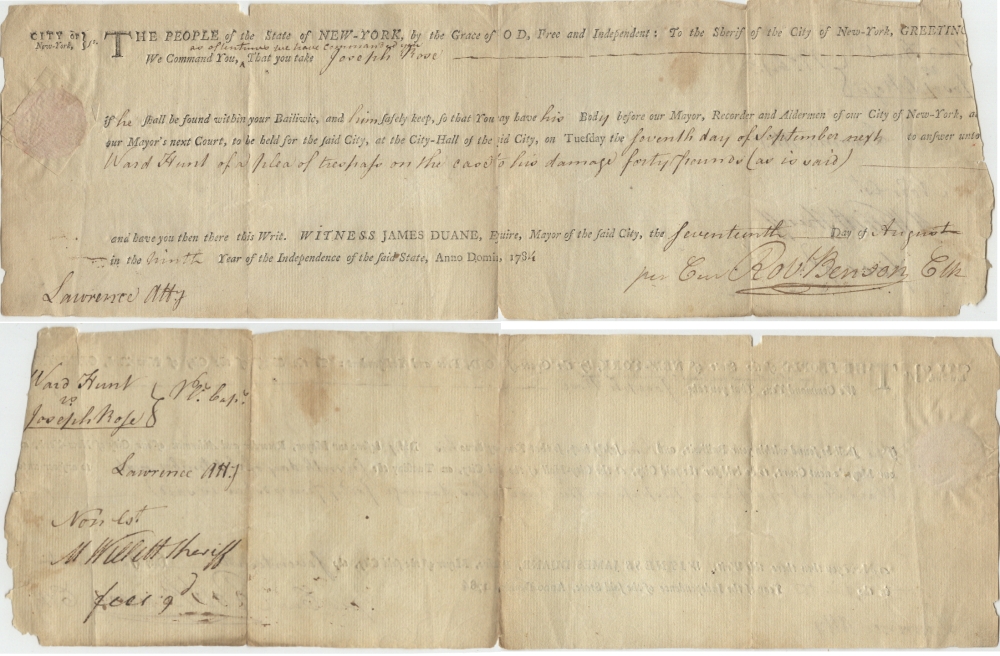 CITY OF
New-York, } ss.
THE PEOPLE of the State of NEW-YORK, by the Grace of OD, Free and Independent: To the Sherif of the City of New-York, GREETIN
as oftentimes we have commanded you
We Command You, ^ That you take Joseph Rose
if he ſhall be found within your Bailiwic, and him ſafely keep, ſo that You ay have his Body before our Mayor, Recorder and Aldermen of our City of New-York, a
our Mayor's next Court, to be held for the ſaid City, at the City-Hall of the id City, on Tueſday the seventh day of September next to anſwer unto
Ward Hunt of a plea of treſpaſs on the case to his damage forty pounds (as is said)
and have you then there this Writ. WITNESS JAMES DUANE, E uire, Mayor of the ſaid City, the seventeenth Day of August
in the ninth Year of the Independence of the ſaid State, Anno Domini, 1784
per Cur Robt. Benson Clk
Lawrence Atty
Ward Hunt
vs
Joseph Roſe
Lawrence Atty
Non Est
M Willett Sheriff